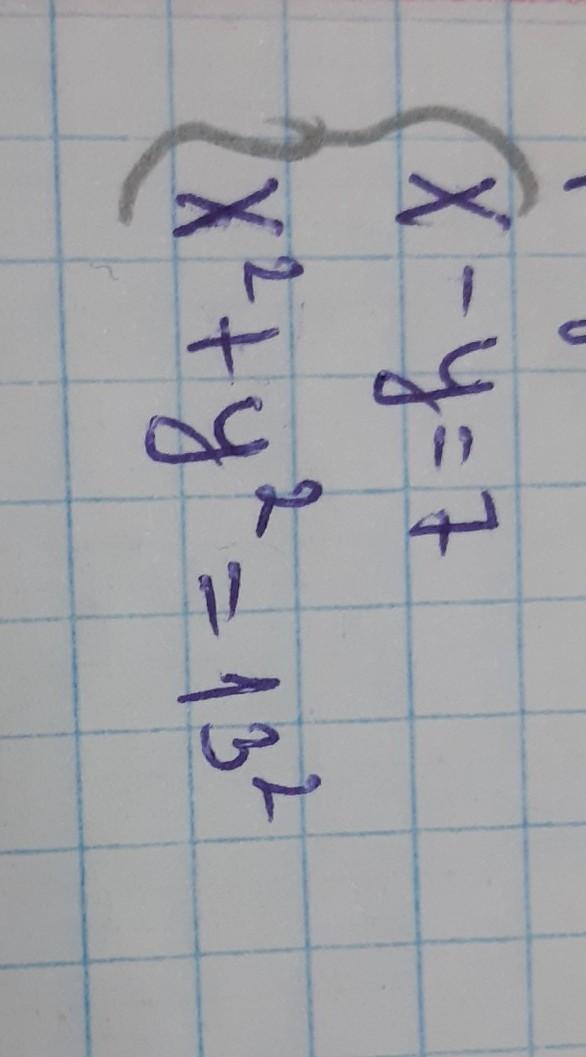 x - y = 7
x² + y² = 13²